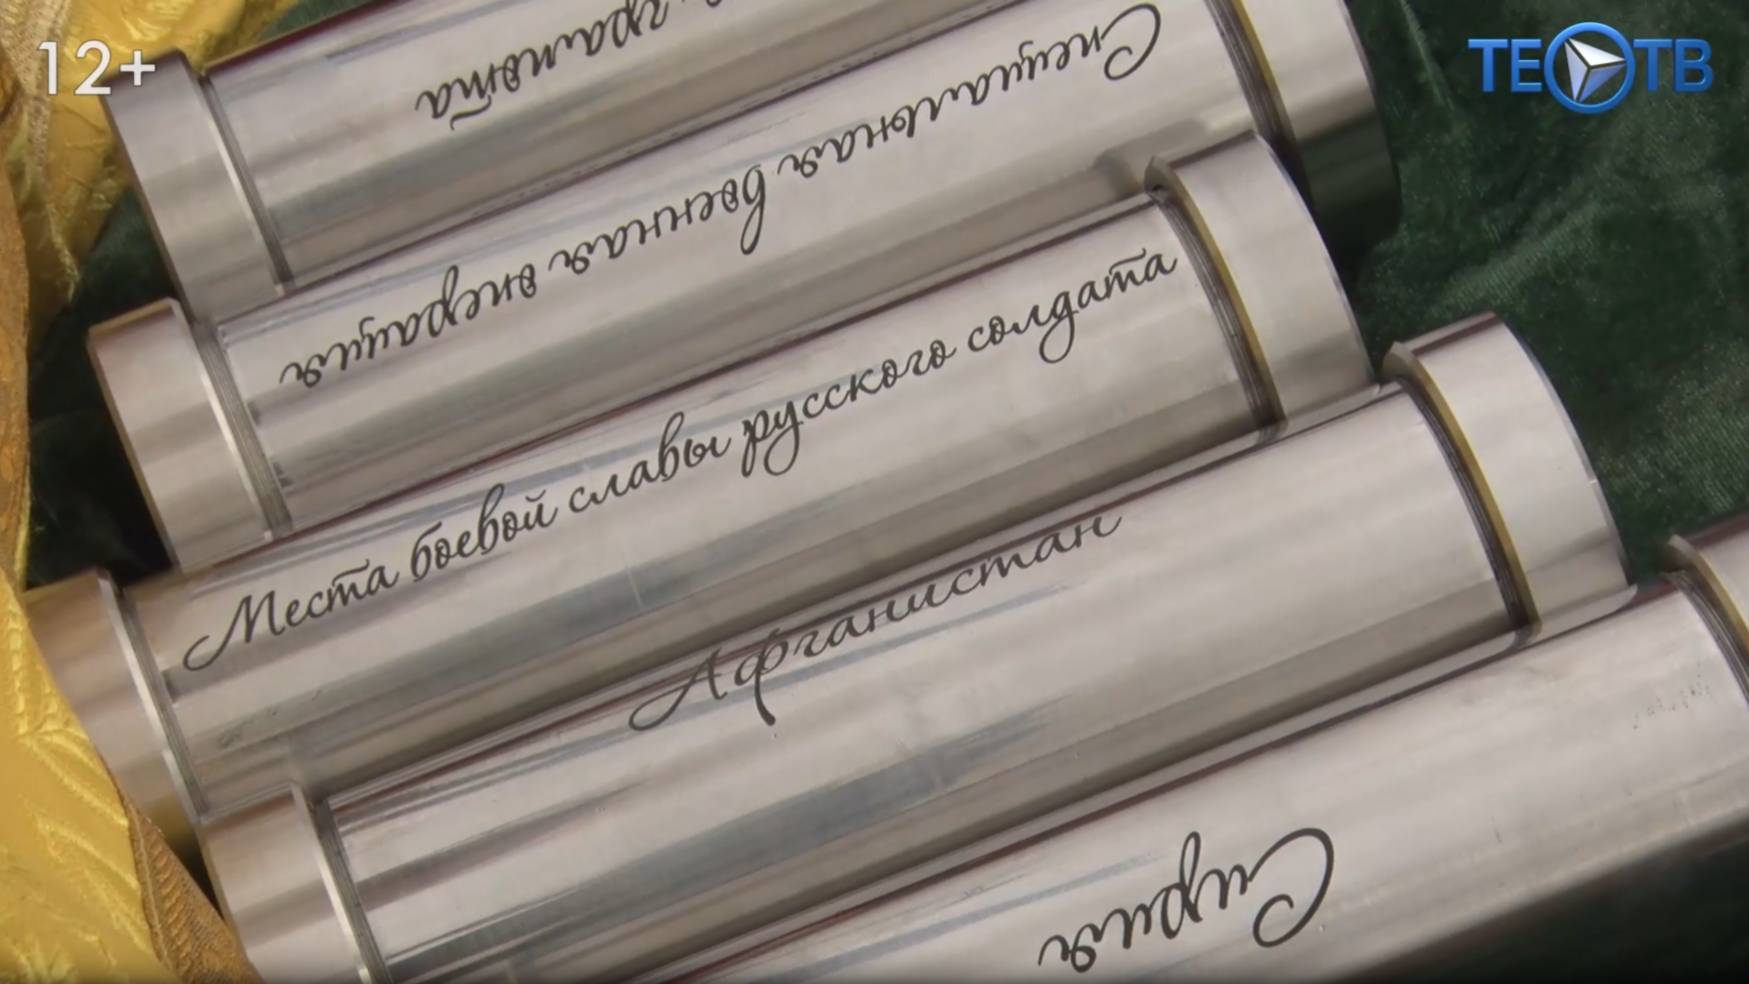 12+
ТЕОТВ
грамота
Специальная военная операция
Места боевой славы русского солдата
Афганистан
Сирия